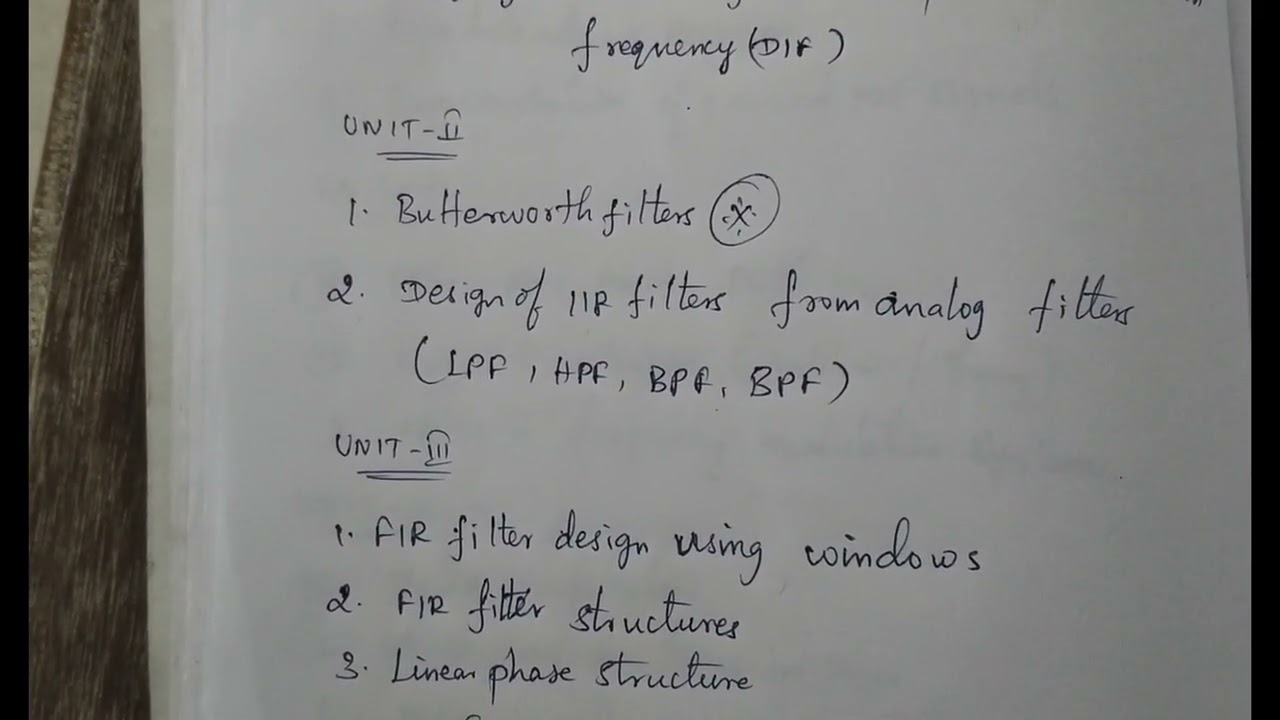 frequency (DIF)
UNIT-II
1. Butterworth filters
2. Design of IIR filters from analog filters
(LPF, HPF, BPF, BPF)
UNIT-III
1. FIR filter design using windows
2. FIR filter structures
3. Linear phase structure